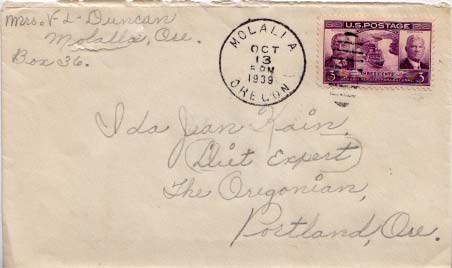 Mrs. V-L-Duncan
Molalla, Ore.
Box 36.
MOLALLA
OCT
13
5 PM
1939
OREGON
U.S. POSTAGE
3 3
Ida Jean Kain,
Diet Expert
The Oregonian,
Portland, Ore.